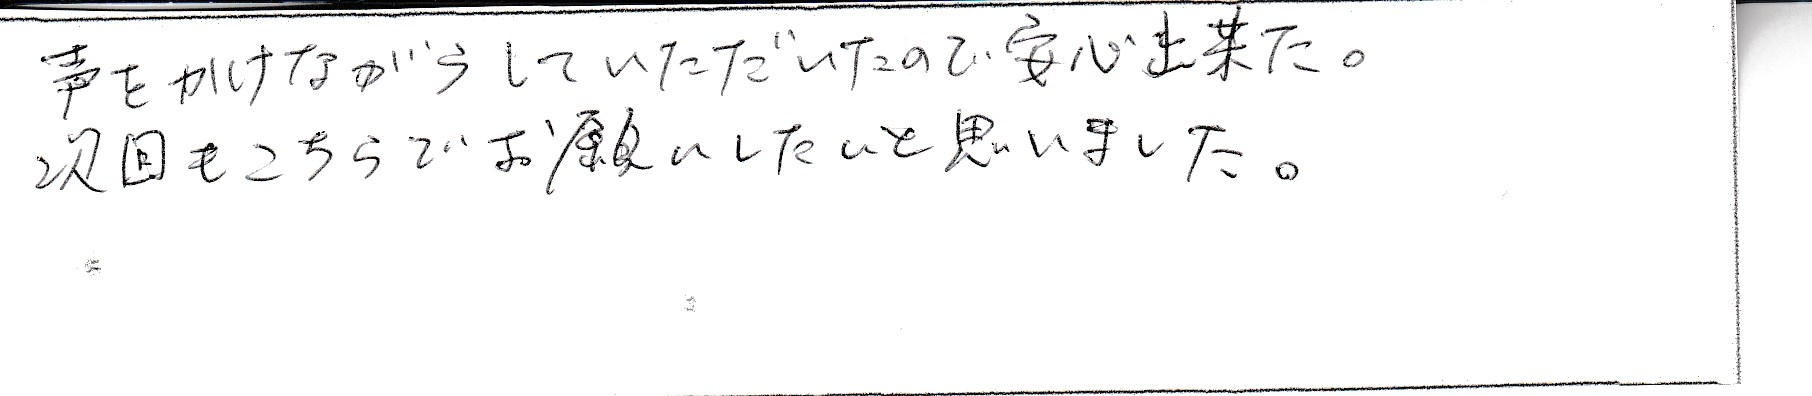 声をかけながらしていただいたので安心出来た。
次回もこちらでお願いしたいと思いました。